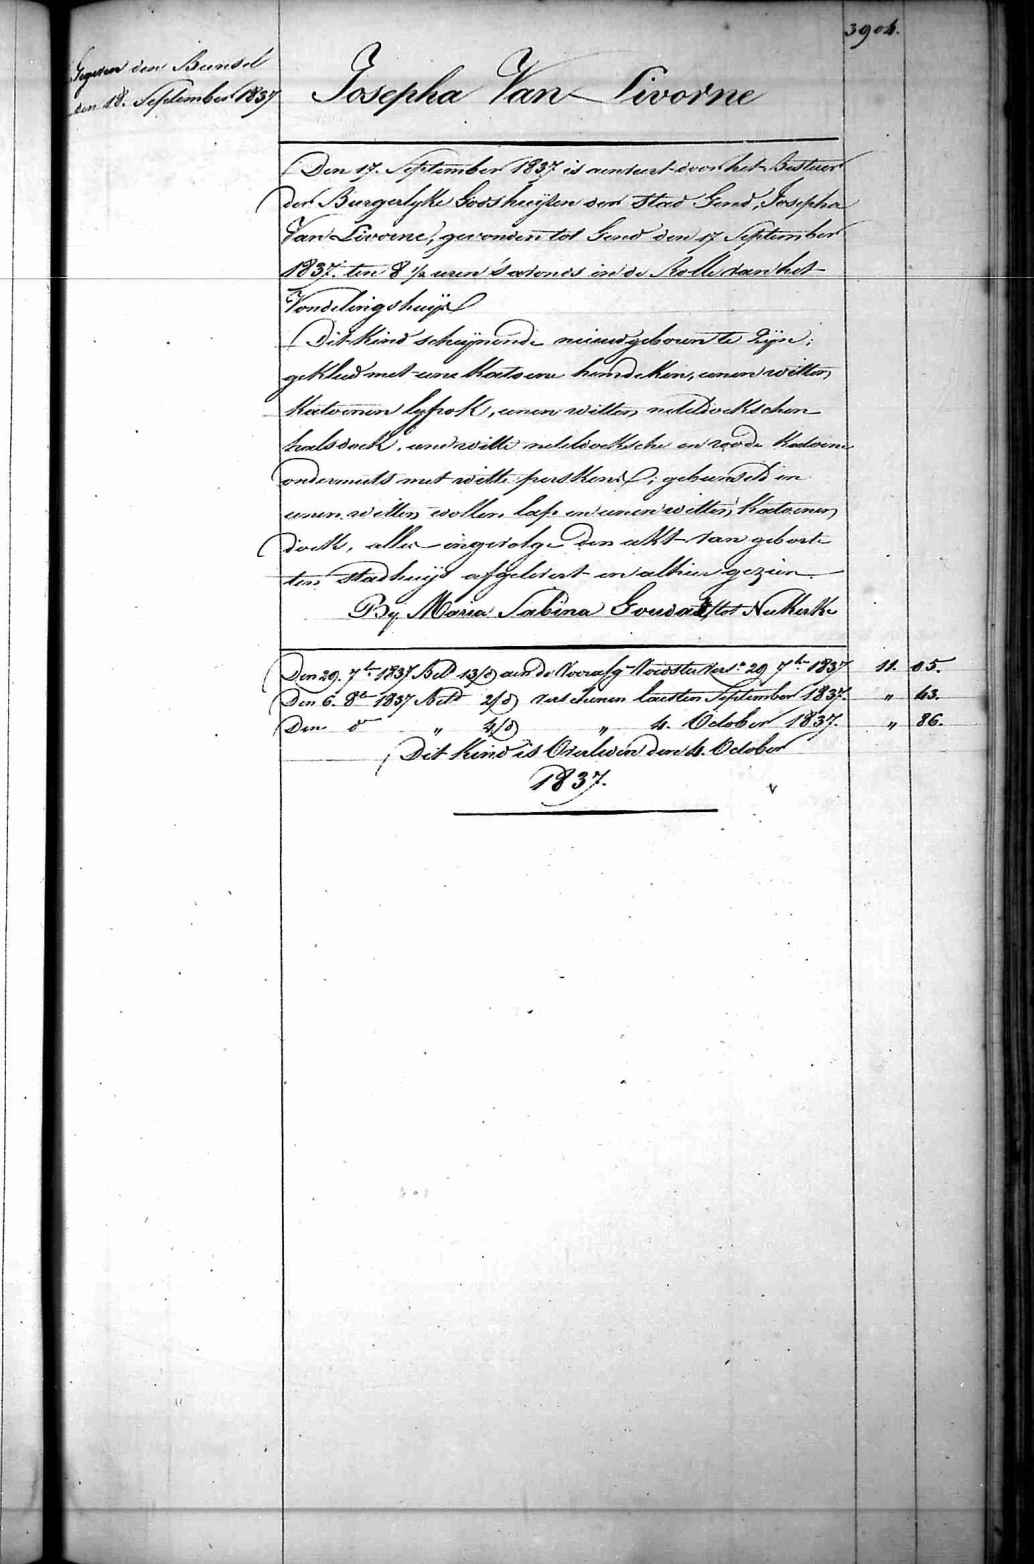 3904.
Gegeven den Bunsel
den 18. September 1837
Josepha Van Livorne
Den 17. September 1837 is aenveert door het Bestuer
der Burgerlyke Godshuijsen der Stad Gend, Josepha
Van Livorne, gevonden tot Gend den 17 September
1837. ten 8 ½ uren 's avonds in de Rolle van het
Vondelingshuijs
Dit Kind schijnende nieuwgeboren te Zijn;
gekleed met eene Katoene hemdeken, eenen witten
Katoenen lyfrok, eenen witten neteldoekschen
halsdoek, eene witte neteldoeksche en roode Katoene
ondermuts met witte ; gebunseld in
eenen witten wollen lap en eenen witten Katoenen
doek, alles ingevolge den akt van geboorte
ten Stadhuijs afgelevert en alhier gezien.
By Maria Sabina tot Nukerke
Den 29. 7bre 1837 Betd 13/d aen de Voorafge Voedster vers. 29 7bre 1837 11. 05.
Den 6. 8re 1837 Betd 2/d verschenen laesten September 1837. " 43.
Den do " 4/d " 4. October 1837. " 86.
Dit kind is Overleden den 4. October
1837.